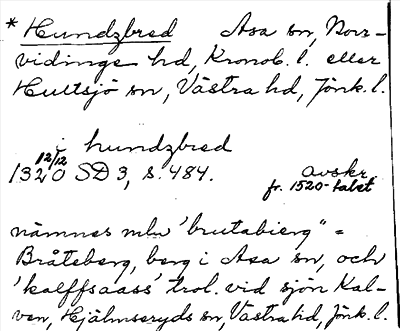 * Hundzbred Asa sn, Norr-
vidinge hd, Kronob. l. eller
Hultsjö sn, Västra hd, Jönk. l.
i hundzbred
1320 12/12 SD 3, s. 484. avskr.
fr. 1520-talet
nämnes mlm 'brutabierg" =
Bråteberg, berg i Asa sn, och
'kalffsaass' trol. vid sjön Kal-
ven, Hjälmseryds sn, Västra hd, Jönk. l.